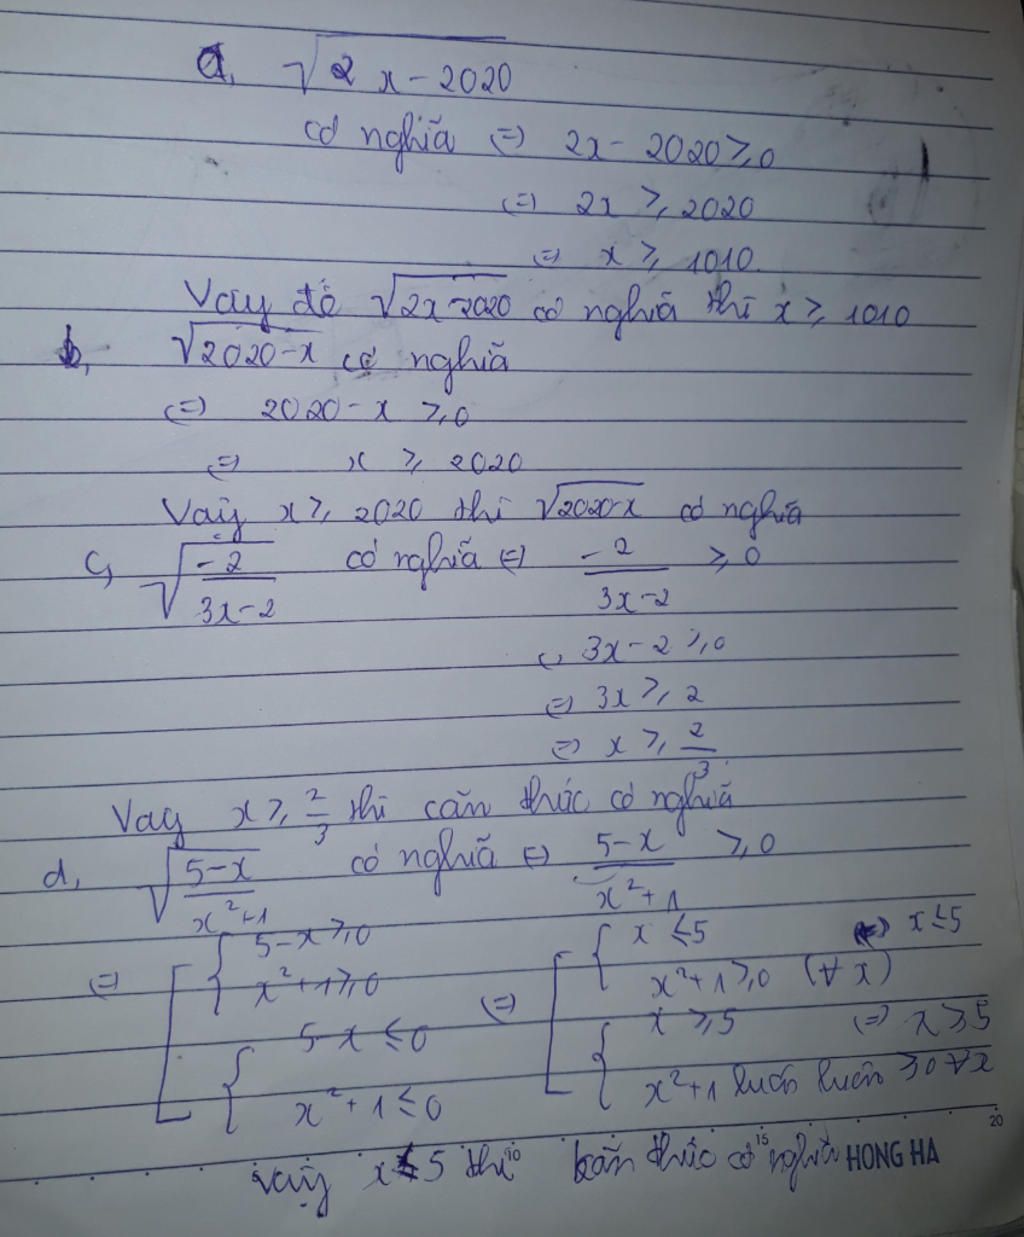 a, √(2x-2020)
có nghĩa (=) 2x - 2020 ⩾ 0
(=) 2x ⩾ 2020
(=) x ⩾ 1010
Vay để √(2x-2020) có nghĩa thì x ⩾ 1010
b, √(2020-x) có nghĩa
(=) 2020 - x ⩾ 0
(=) x ⩾ 2020
Vaỵ x ⩾ 2020 thì √(2020-x) có nghĩa
c, √(-2/(3x-2)) có nghĩa (=) -2/(3x-2) ⩾ 0
(=) 3x - 2 ⩾ 0
(=) 3x ⩾ 2
(=) x ⩾ 2/3
Vay x ⩾ 2/3 thì căn thức có nghĩa
d, √((5-x)/(x²+1)) có nghĩa (=) (5-x)/(x²+1) ⩾ 0
(=) [ { 5-x ⩾ 0 (=) [ { x ≤ 5 (=) x ≤ 5
x²+1 ⩾ 0 x²+1 ⩾ 0 (∀x)
{ 5-x ≤ 0 { x ⩾ 5 (=) x ⩾ 5
x²+1 ≤ 0 x²+1 luôn luôn ⩾ 0 ∀x
vaỵ x ≤ 5 thì căn thức có nghĩa
10 15 20
HONG HA